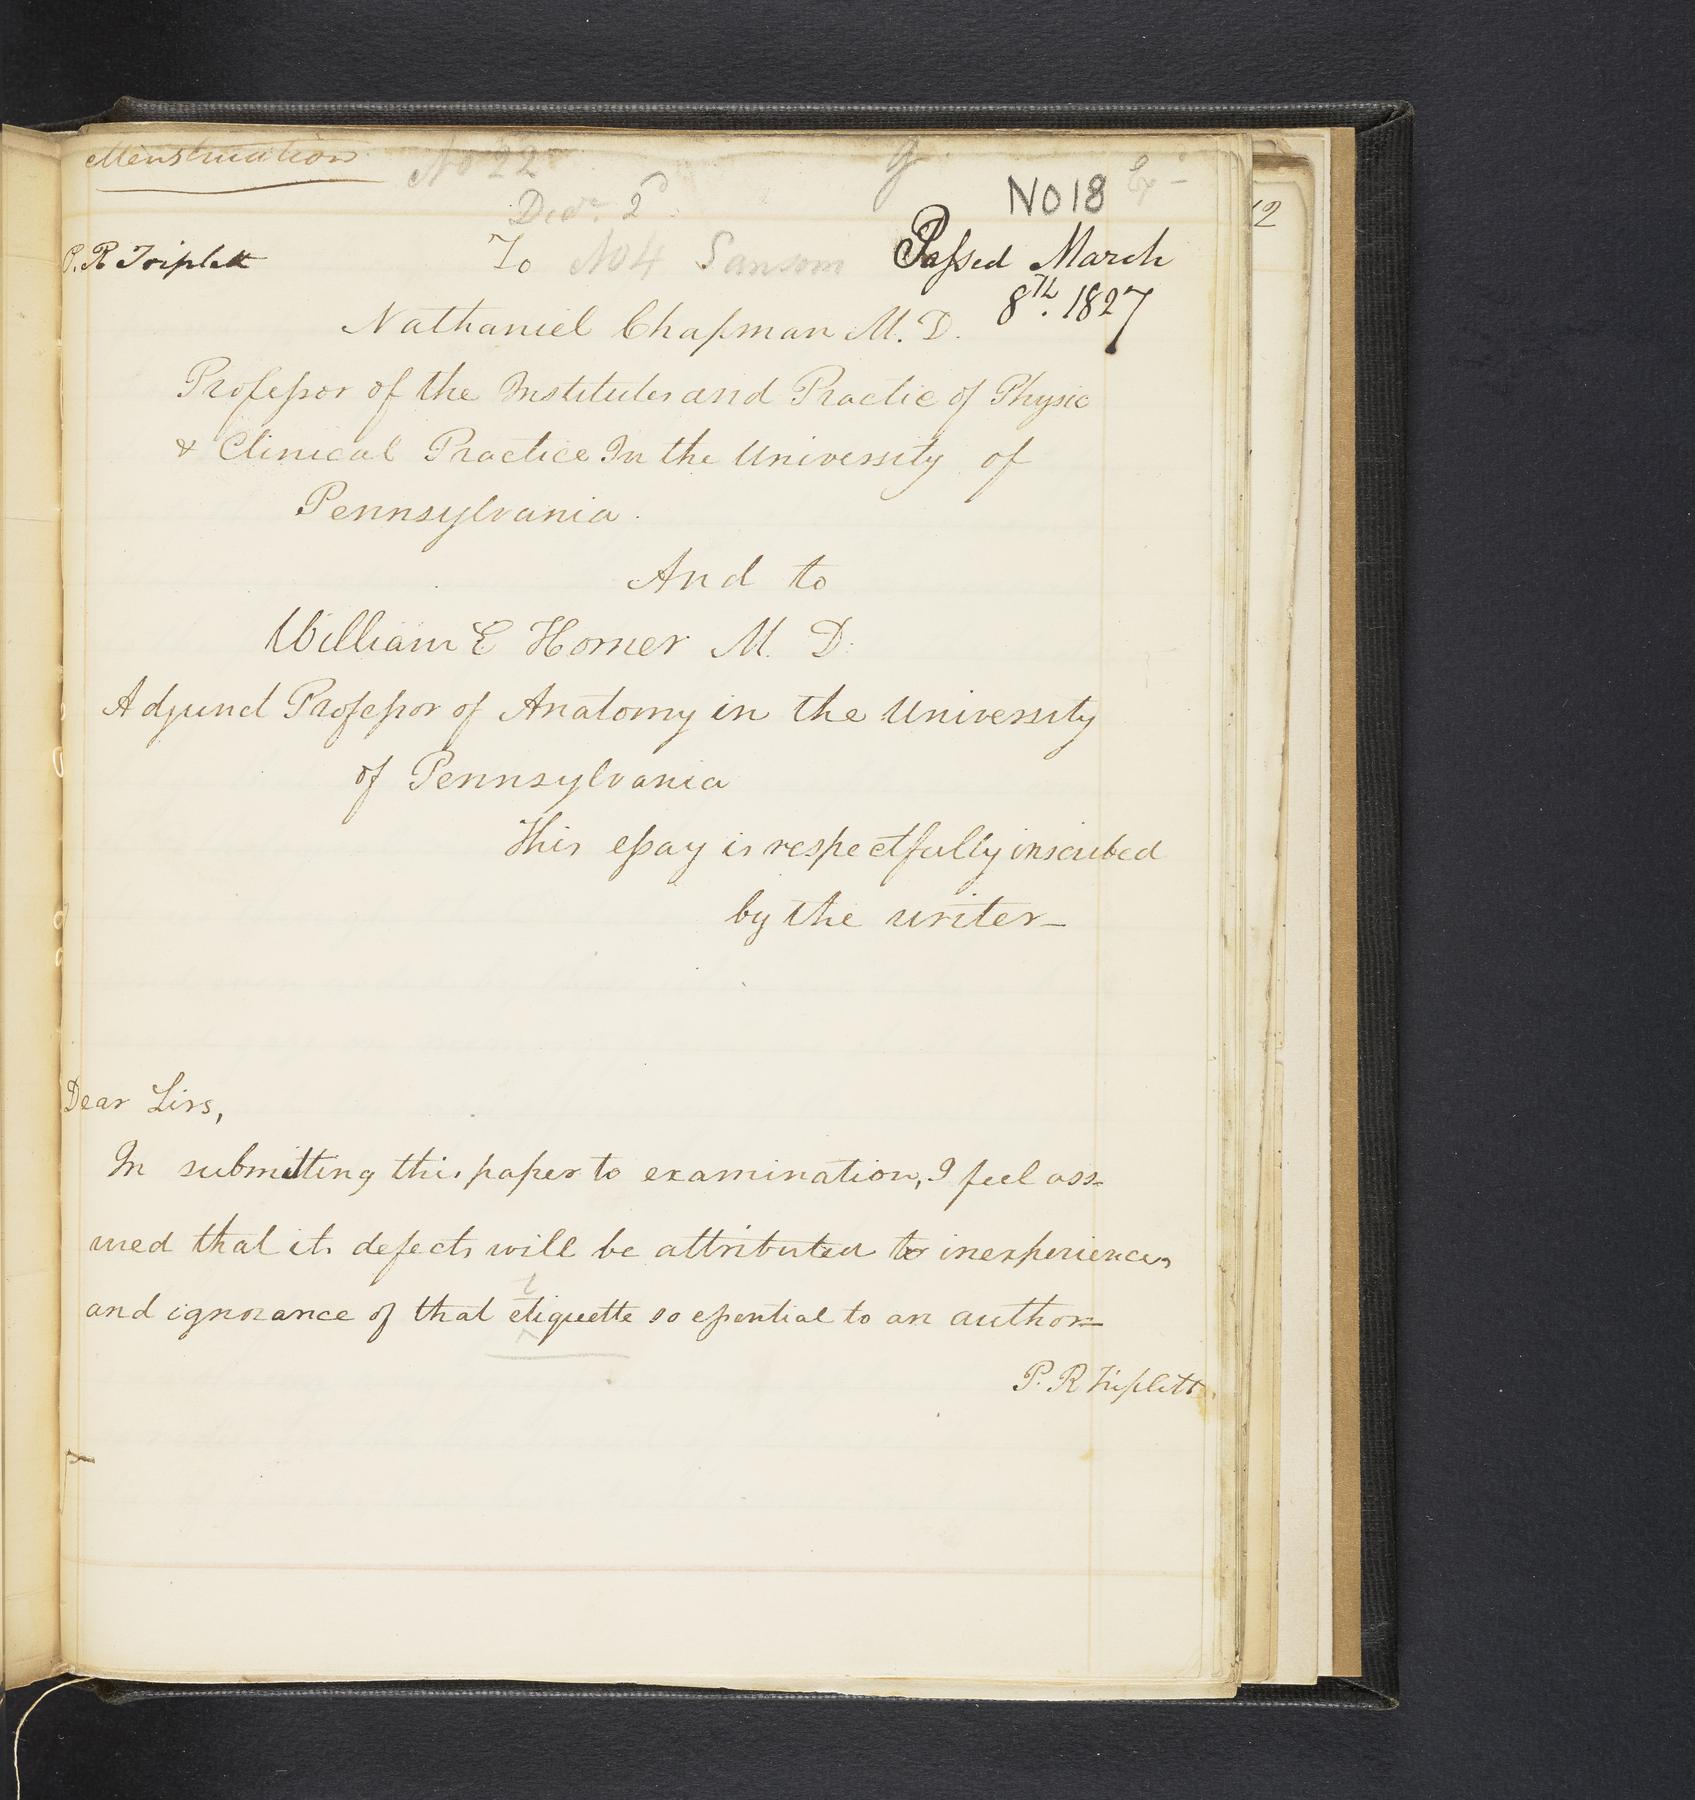 Menstruation
No 22
g
No 18
Decr. 2d
12
P. R Triplett
To
No 4 Sansom
Passed March
8th. 1827
Nathaniel Chapman M. D.
Professor of the Institutes and Practic of Physic
& Clinical Practice In the University of
Pennsylvania.
And to
William E Horner M. D.
Adjunct Professor of Anatomy in the University
of Pennsylvania
This essay is respectfully inscribed
by the writer_
Dear Sirs,
In submitting this paper to examination, I feel ass=
ured that its defects will be attributed to inexperience,
and ignorance of that etiquette so essential to an author=
t
P. R Triplett